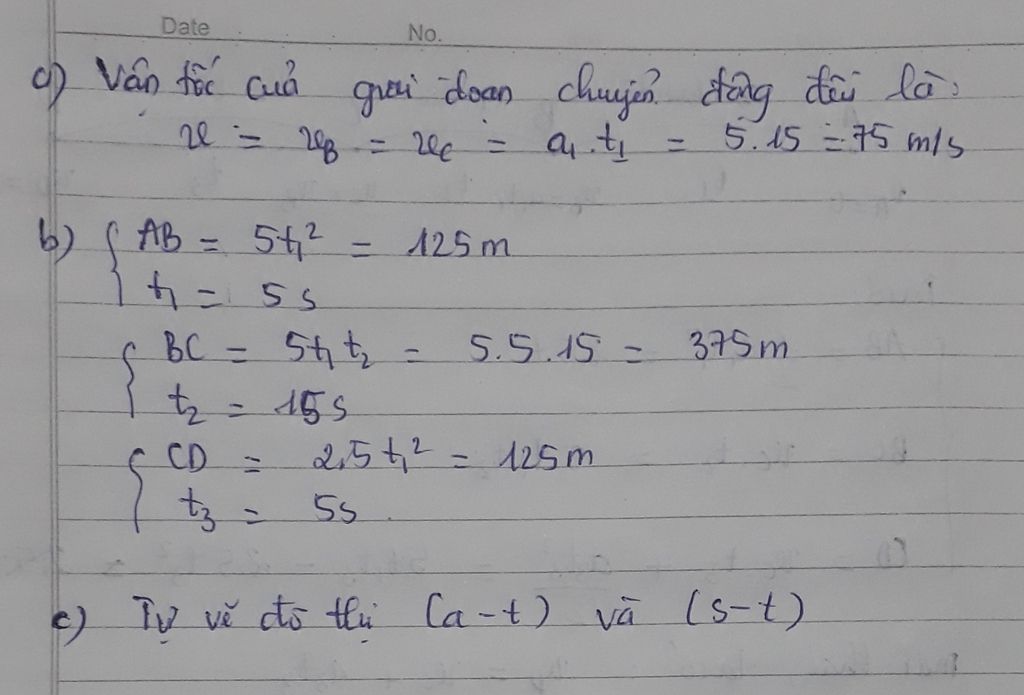 Date No.
a) Vân tốc của giai đoạn chuyển động đều là:
v = v_B = v_C = a₁.t₁ = 5.15 = 75 m/s
b) { AB = 5t₁² = 125m
t₁ = 5s
{ BC = 5t₁t₂ = 5.5.15 = 375m
t₂ = 15s
{ CD = 2,5t₁² = 125m
t₃ = 5s.
c) Tự vẽ đồ thị (a-t) và (s-t)